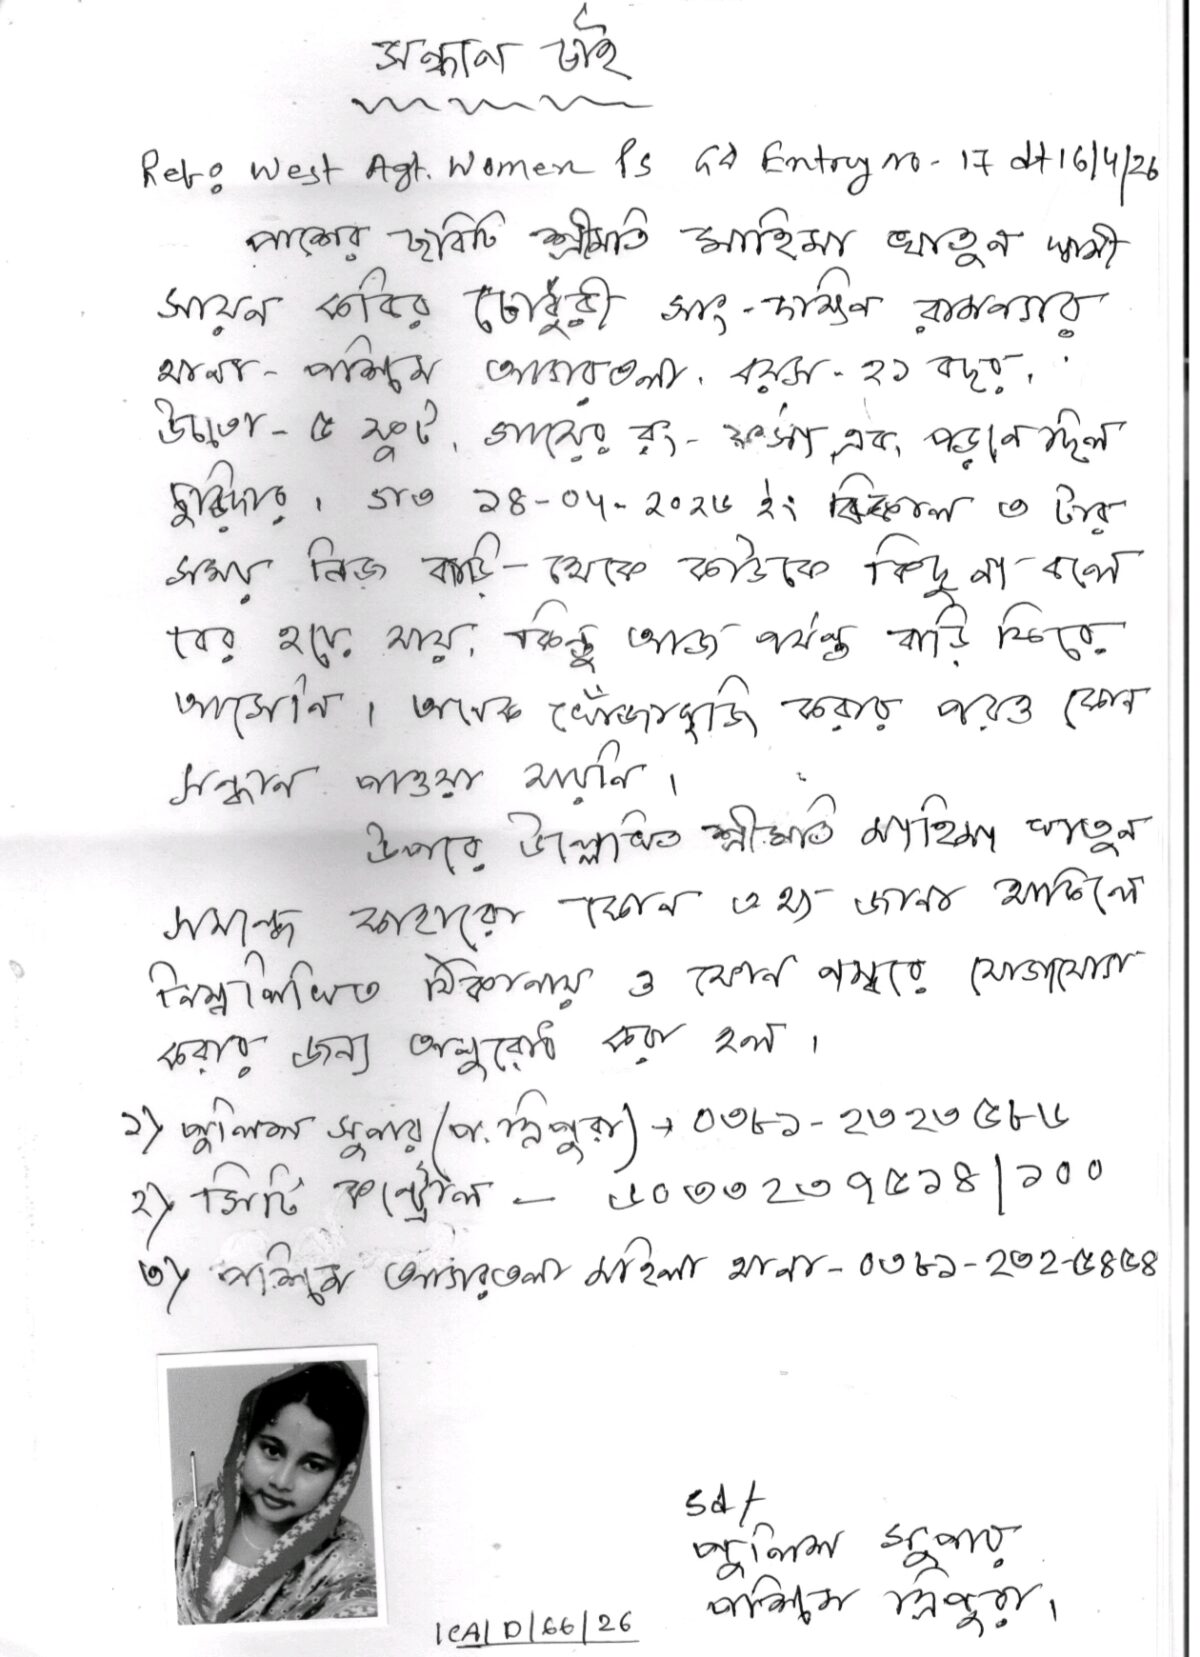 সন্ধান চাই
Ref: West Agt. Women PS GD Entry no - 17 dt 16/4/26
পাশের ছবিটি শ্রীমতি মাহিমা খাতুন স্বামী
সায়ন কবির চৌধুরী সাং - দক্ষিণ রামনগর
থানা - পশ্চিম আগরতলা, বয়স - ২১ বছর,
উচ্চতা - ৫ ফুট, গায়ের রং - ফর্সা, এবং পড়নে ছিল
চুরিদার। গত ১৪-০৪-২০২৬ ইং বিকাল ৩ টার
সময় নিজ বাড়ি থেকে কাউকে কিছু না বলে
বের হয়ে যায়, কিন্তু আজ পর্যন্ত বাড়ি ফিরে
আসেনি। অনেক খোঁজাখুজি করার পরও কোন
সন্ধান পাওয়া যায়নি।
উপরে উল্লেখিত শ্রীমতি মাহিমা খাতুন
সমন্ধে কাহারো কোন তথ্য জানা থাকিলে
নিম্নলিখিত ঠিকানায় ও ফোন নম্বরে যোগাযোগ
করার জন্য অনুরোধ করা হল।
১) পুলিশ সুপার (প. ত্রিপুরা) → ০৩৮১-২৩২৩৫৮৬
২) সিটি কন্ট্রোল - ৬০৩৩২৩৭৫১৪/১০০
৩) পশ্চিম আগরতলা মহিলা থানা - ০৩৮১-২৩২-৫৪৫৪
Sd/-
পুলিশ সুপার
পশ্চিম ত্রিপুরা।
ICA/D/66/26